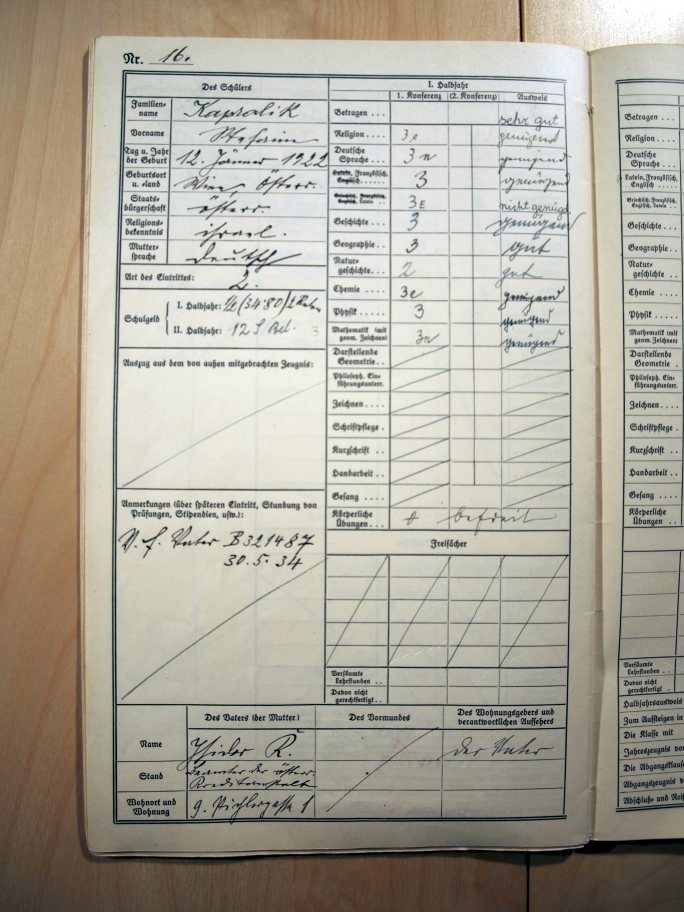 Nr. 16.
Des Schülers
Familien-
name Kapralik
Vorname
Tag u. Jahr
der Geburt 12. Jänner 1922
Geburtsort
u. -land Wien, Österr.
Staats-
bürgerschaft österr.
Religions-
bekenntnis israel.
Mutter-
sprache deutsch
Art des Eintrittes: 2.
Schulgeld
I. Halbjahr: 1/2 (3480)
II. Halbjahr: 12 S Bel. 3
Auszug aus dem von außen mitgebrachten Zeugnis:
Anmerkungen (über späteren Eintritt, Stundung von
Prüfungen, Stipendien, usw.):
V. f. Vater B321487
30.5.34
I. Halbjahr
1. Konferenz (2. Konferenz) Ausweis
Betragen . . . sehr gut
Religion . . . . 3e genügend
Deutsche
Sprache . . . 3e genügend
Latein, Französisch,
Englisch . . . . . 3 genügend
Griechisch, Französisch,
Englisch, Latein . . 3e nicht genügd
Geschichte . . 3 genügend
Geographie . . 3 gut
Natur-
geschichte . . 2 gut
Chemie . . . . 3e genügend
Physik . . . . 3 genügend
Mathematik (mit
geom. Zeichnen) 3e genügend
Darstellende
Geometrie . .
Philosoph. Ein-
führungsunterr.
Zeichnen . . . .
Schriftpflege .
Kurzschrift . .
Handarbeit . .
Gesang . . . .
Körperliche
Übungen . . . befreit
Freifächer
Versäumte
Lehrstunden . .
Davon nicht
gerechtfertigt .
Des Vaters (der Mutter) Des Vormundes Des Wohnungsgebers und
verantwortlichen Aufsehers
Name Isidor K. der Vater
Stand Beamter der österr.
Kreditanstalt
Wohnort und
Wohnung 9. Pichlergasse 1
Betragen . . .
Religion . . . .
Deutsche
Sprache . . .
Latein, Französisch,
Englisch . . . .
Griechisch, Französisch,
Englisch, Latein . .
Geschichte . .
Geographie . .
Natur-
geschichte . .
Chemie . . . .
Physik . . . .
Mathematik (mit
geom. Zeichnen)
Darstellende
Geometrie .
Philosoph. Ein-
führungsunterr.
Zeichnen . . . .
Schriftpflege .
Kurzschrift . .
Handarbeit . .
Gesang . . . .
Körperliche
Übungen . . .
Versäumte
Lehrstunden . .
Davon nicht
gerechtfertigt .
Halbjahrsausweis
Zum Aufsteigen in
Die Klasse mit
Jahreszeugnis vo
Die Abgangsklaus
Abgangszeugnis v
Abschluß- und Reif